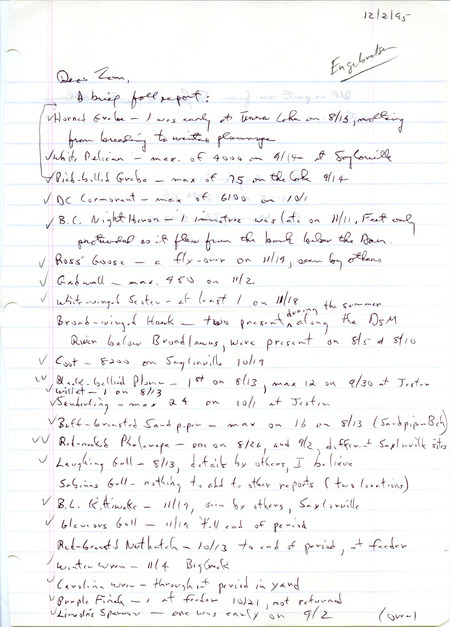 12/2/95
Engebretsen
Dear Tom,
A brief fall report:
Horned Grebe – 1 was early at Terra Lake on 8/13, molting
from breeding to winter plumage
White Pelican – max. of 4000 on 9/14 at Saylorville
Pied-billed Grebe – max of 75 on the lake 9/14
DC Cormorant – max of 6100 on 10/1
B.C. Night Heron – 1 immature was late on 11/11, Feet only
protruded as it flew from the bank below the Dam.
Ross' Goose – a fly-over on 11/19, seen by others
Gadwall – max. 450 on 11/2
White-winged Scoter – at least 1 on 11/18
Broad-winged Hawk – two present during the summer along the DSM
River below Broadlawns, were present on 8/5 & 8/10
Coot – 8200 on Saylorville 10/19
Black-bellied Plover – 1st on 8/13, max 12 on 9/30 at Jester
Willet – 1 on 8/13
Sanderling – max 24 on 10/1 at Jester
Buff-breasted Sandpiper – max on 16 on 8/13 (Sandpiper Bch)
Red-necked Phalarope – one on 8/26, and 9/2, different Saylorville sites
Laughing Gull – 8/13, details by others, I believe
Sabines Gull – nothing to add to other reports (two locations)
B.L. Kittiwake – 11/19, seen by others, Saylorville
Glaucous Gull – 11/19 till end of period
Red-breasted Nuthatch – 10/13 to end of period, at feeder
Winter Wren – 11/4 Big Creek
Carolina Wren – throughout period in yard
Purple Finch – 1 at feeder 10/21, not returned
Lincoln's Sparrow – one was early on 9/2 (over)